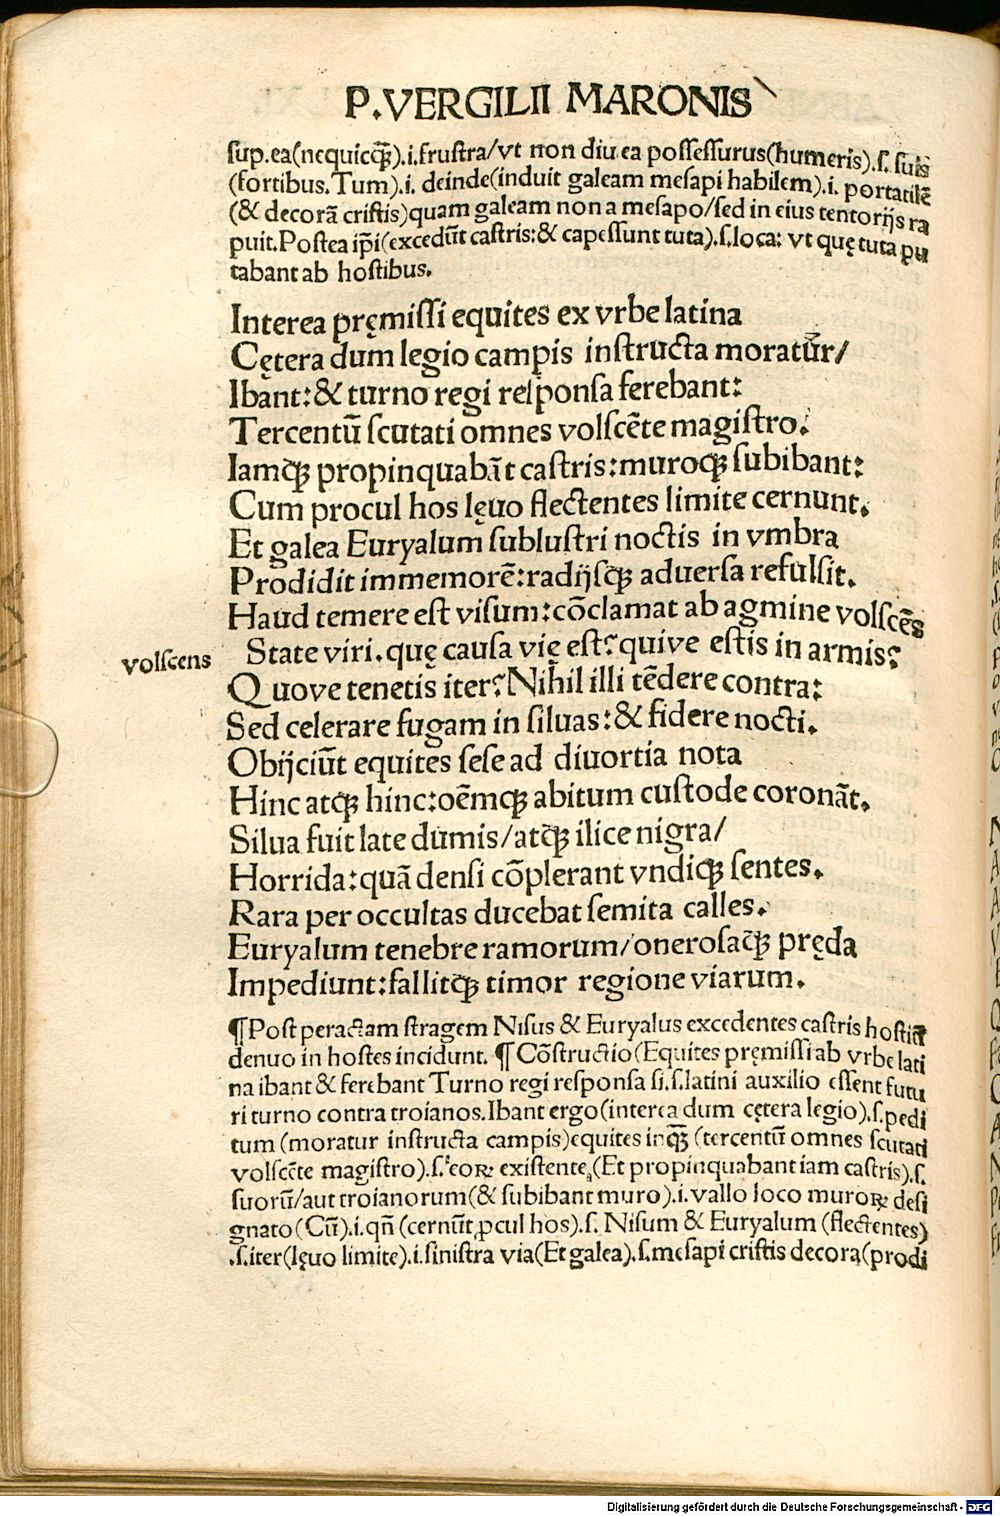 P.VERGILII MARONIS
sup.ea(nequicq̃).i.frustra/vt non diu ea possessurus(humeris).s. suis
(fortibus.Tum).i. deinde(induit galeam mesapi habilem).i. portatilẽ
(& decorã cristis)quam galeam non a mesapo/sed in eius tentorijs ra
puit.Postea ip̃i(excedũt castris:& capessunt tuta).s.loca: vt quę tuta pu
tabant ab hostibus.
Interea pręmissi equites ex vrbe latina
Cętera dum legio campis instructa moratur̃/
Ibant:& turno regi responsa ferebant:
Tercentũ scutati omnes volscẽte magistro.
Iamq̃ propinquabãt castris:muroq̃ subibant:
Cum procul hos lęuo flectentes limite cernunt.
Et galea Euryalum sublustri noctis in vmbra
Prodidit immemorẽ:radijsq̃ aduersa refulsit.
Haud temere est visum:cõclamat ab agmine volscẽs
volscens
State viri.quę causa vię est?quive estis in armis?
Quove tenetis iter?Nihil illi tẽdere contra:
Sed celerare fugam in siluas:& fidere nocti.
Obijciũt equites sese ad diuortia nota
Hinc atq̃ hinc:oẽmq̃ abitum custode coronãt.
Silua fuit late dumis/atq̃ ilice nigra/
Horrida:quã densi cõplerant vndiq̃ sentes.
Rara per occultas ducebat semita calles.
Euryalum tenebre ramorum/onerosaq̃ pręda
Impediunt:fallitq̃ timor regione viarum.
¶Post peractam stragem Nisus & Euryalus excedentes castris hostiũ
denuo in hostes incidunt. ¶Cõstructio(Equites pręmissi ab vrbe lati
na ibant & ferebant Turno regi responsa si.s.latini auxilio essent futu
ri turno contra troianos.Ibant ergo(interea dum cętera legio).s.pedi
tum (moratur instructa campis)equites inq̃ (tercentũ omnes scutati
volscẽte magistro).s.eoꝝ existente,(Et propinquabant iam castris).s.
suorũ/aut troianorum(& subibant muro).i.vallo loco muroꝝ desi
gnato(Cũ).i.qñ(cernũt ꝓcul hos).s. Nisum & Euryalum (flectentes)
.s.iter(lęuo limite).i.sinistra via(Et galea).s.mesapi cristis decora(prodi
Digitalisierung gefördert durch die Deutsche Forschungsgemeinschaft - DFG